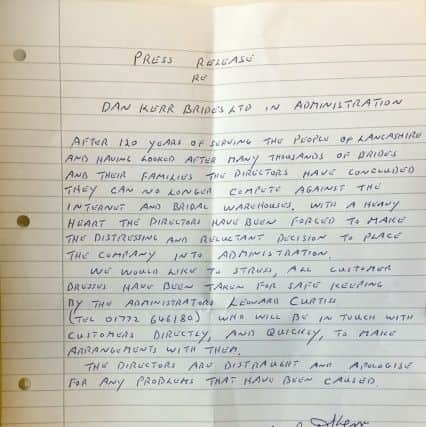 PRESS RELEASE
RE
DAN KERR BRIDES LTD IN ADMINISTRATION
AFTER 120 YEARS OF SERVING THE PEOPLE OF LANCASHIRE
AND HAVING LOOKED AFTER MANY THOUSANDS OF BRIDES
AND THEIR FAMILIES THE DIRECTORS HAVE CONCLUDED
THEY CAN NO LONGER COMPETE AGAINST THE
INTERNET AND BRIDAL WAREHOUSES. WITH A HEAVY
HEART THE DIRECTORS HAVE BEEN FORCED TO MAKE
THE DISTRESSING AND RELUCTANT DECISION TO PLACE
THE COMPANY INTO ADMINISTRATION.
WE WOULD LIKE TO STRESS, ALL CUSTOMER
DRESSES HAVE BEEN TAKEN FOR SAFE KEEPING
BY THE ADMINISTRATORS LEONARD CURTIS,
(TEL 01772 646180) WHO WILL BE IN TOUCH WITH
CUSTOMERS DIRECTLY, AND QUICKLY, TO MAKE
ARRANGEMENTS WITH THEM.
THE DIRECTORS ARE DISTRAUGHT AND APOLOGISE
FOR ANY PROBLEMS THAT HAVE BEEN CAUSED.